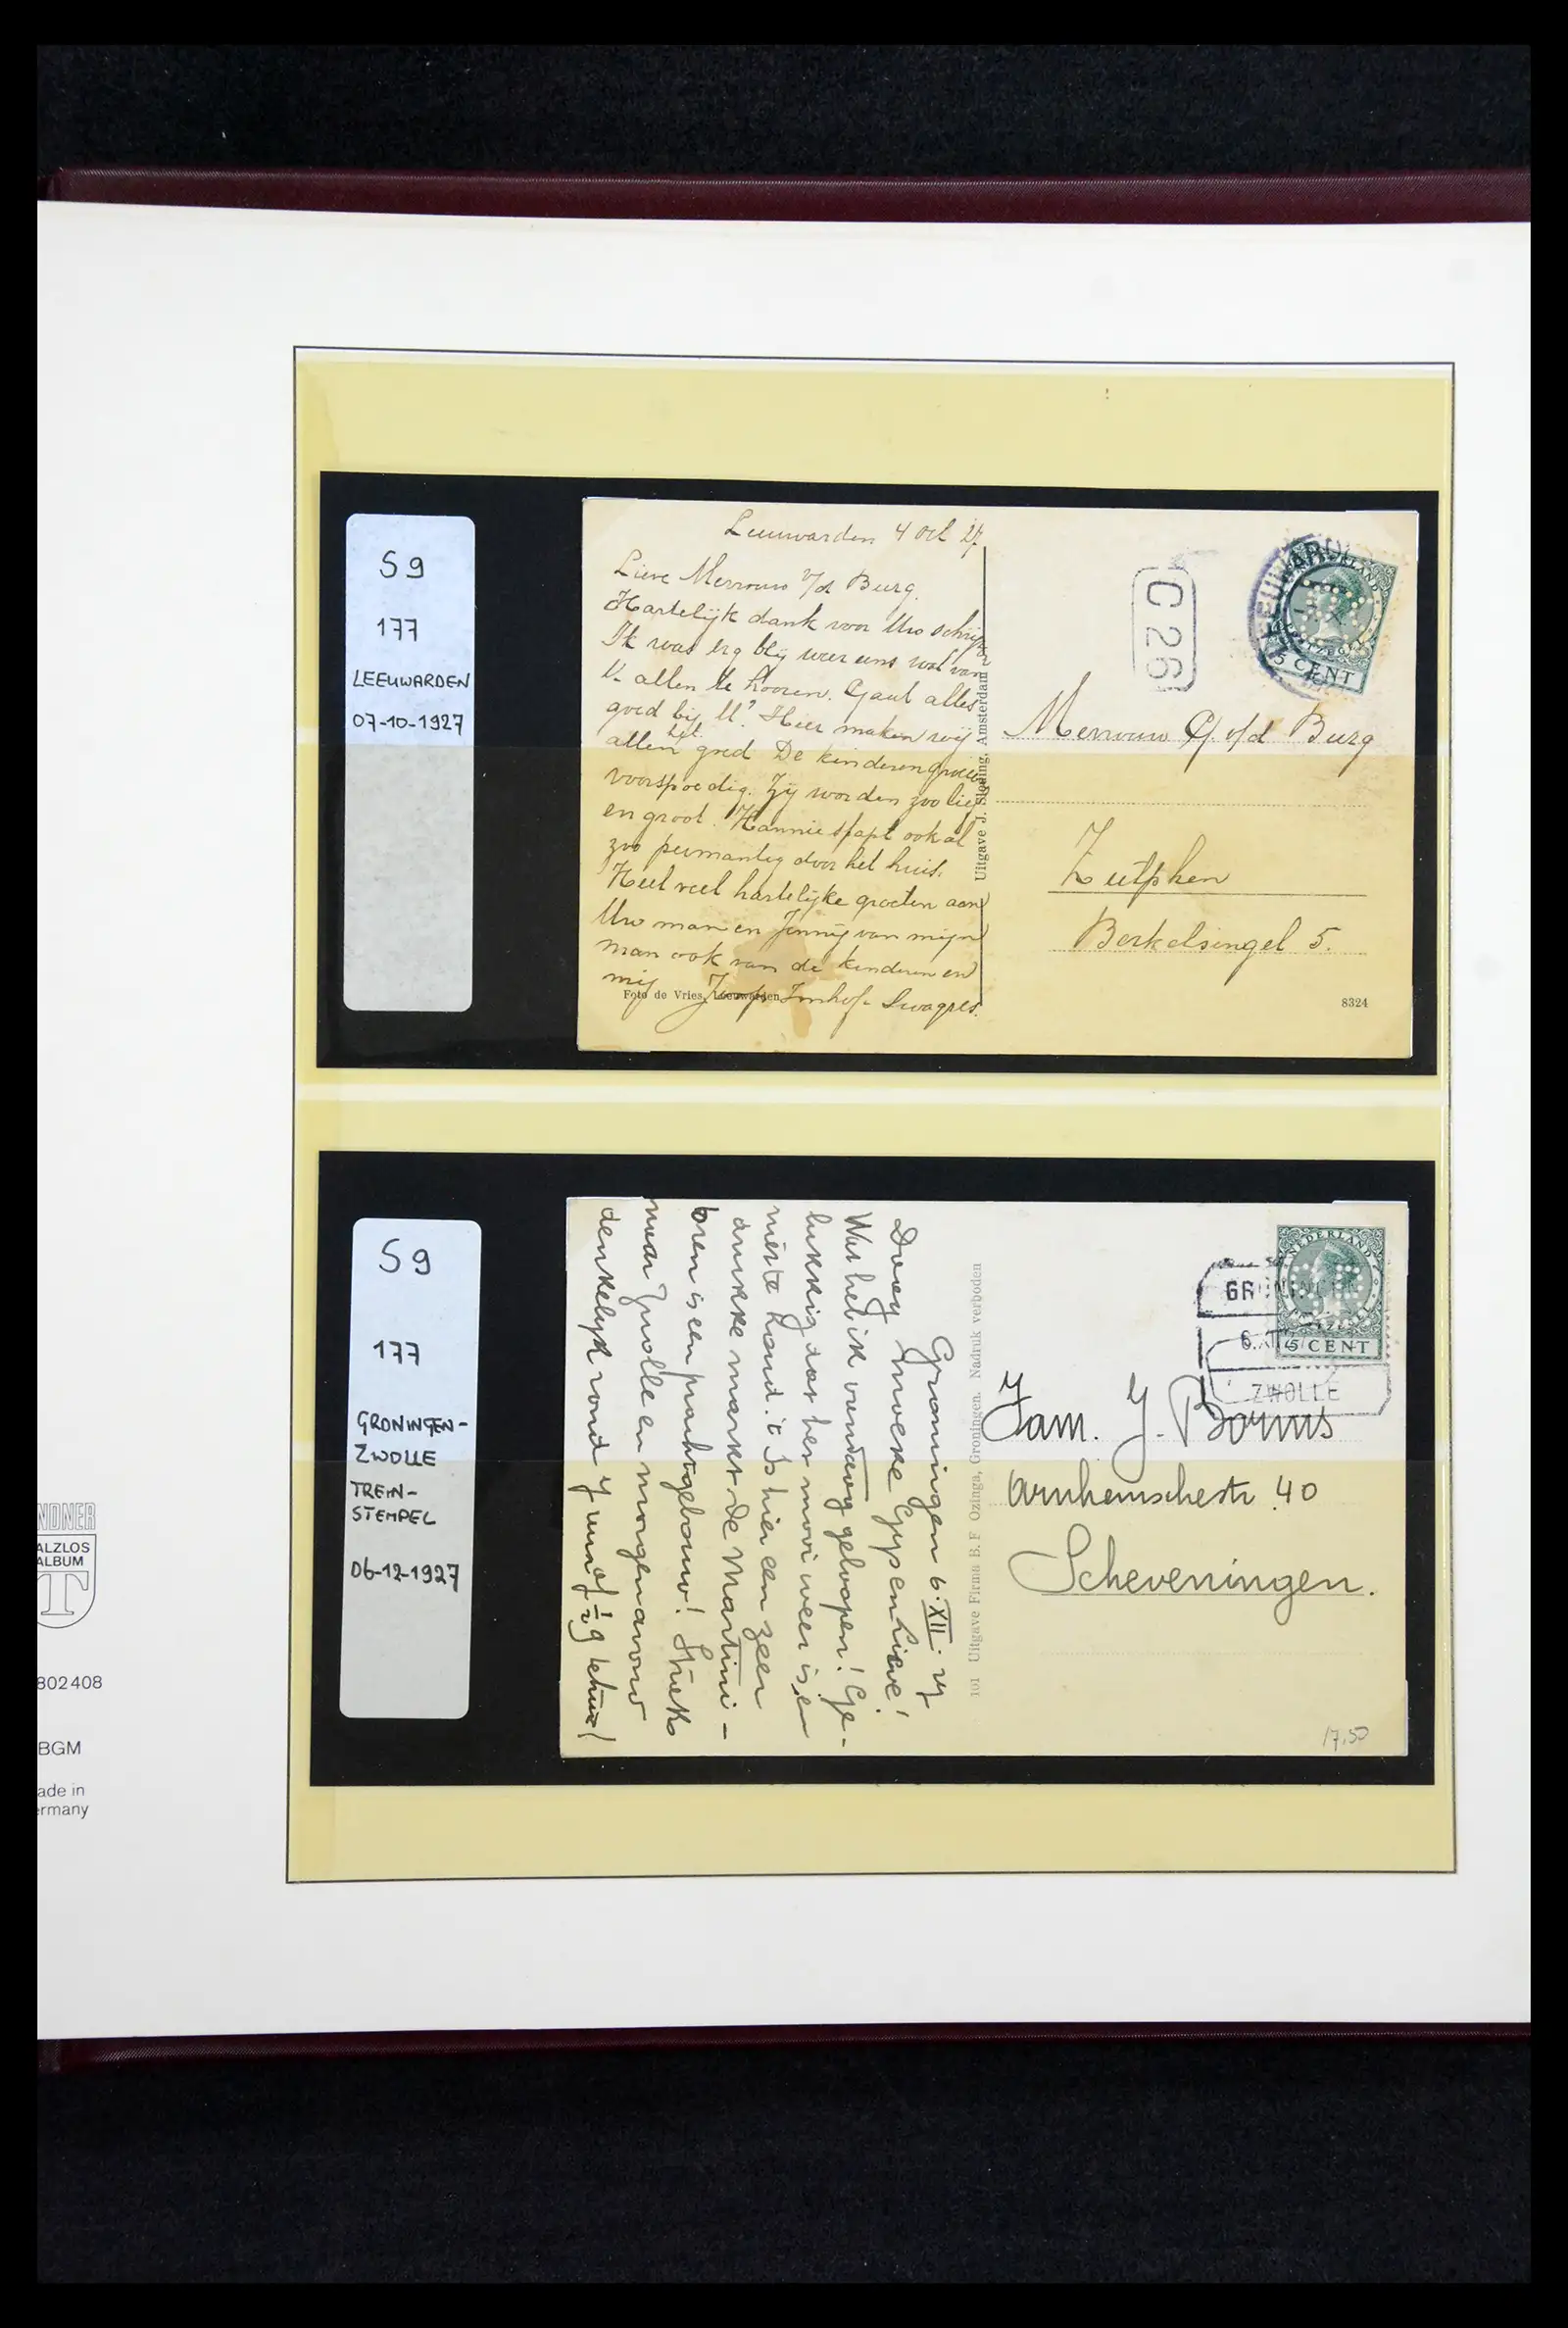 S9
177
LEEUWARDEN
07-10-1927
Leeuwarden 4 Oct 27
Lieve Mevrouw v/d Burg.
Hartelijk dank voor Uw schrijven
Ik was erg blij weer eens wat van
U allen te hooren. Gaat alles
goed bij U? Hier maken wij
allen het goed De kinderen groeien
voorspoedig. Zij worden zoo lief
en groot. Hannie stapt ook al
zoo permantig door het huis.
Heel veel hartelijke groeten aan
Uw man en Jenny van mijn
man ook van de kinderen en
mij
Foto de Vries, Leeuwarden
Imhof-Swagers.
Uitgave J. Sleding, Amsterdam
C 26
LEEUWARDEN
NEDERLAND
5 CENT
Mevrouw v/d Burg
Zutphen
Berkelsingel 5.
8324
S9
177
GRONINGEN-
ZWOLLE
TREIN-
STEMPEL
06-12-1927
Groningen 6.XII.27
Dag Lieve!
Wat heb ik vandaag geloopen! Ge-
lukkig dat het mooi weer is en
hier een zeer
drukke markt. De Martini-
toren is een prachtgebouw! Straks
naar Zwolle en morgenavond
denkelijk rond 9 uur of ½ 9 thuis!
101 Uitgave Firma B. F Ozinga, Groningen. Nadruk verboden
NEDERLAND
5 CENT
GRONINGEN
6.XII
ZWOLLE
Fam. J. Borms
Arnhemschestr. 40
Scheveningen.
17,50
NDNER
ALZLOS
ALBUM
T
802408
BGM
ade in
ermany